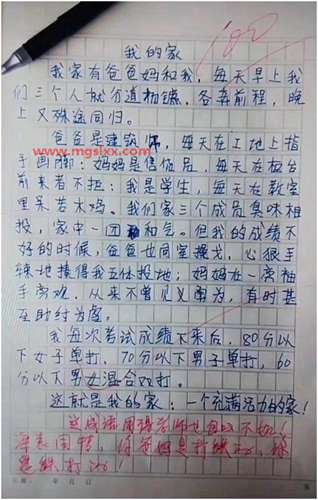 100
我的家
我家有爸爸妈和我，每天早上我
们三个人就分道扬镳，各奔前程，晚
上又殊途同归。
爸爸是建筑师，每天在工地上指
手画脚；妈妈是售货员，每天在柜台
www.mgslxx.com
前来者不拒；我是学生，每天在教室
里呆若木鸡。我们家三个成员臭味相
投，家中一团和气。但我的成绩不
好的时候，爸爸也同室操戈，心狠手
辣地揍得我五体投地；妈妈在一旁袖
手旁观，从来不曾见义勇为，有时甚
至助纣为虐。
我每次考试成绩下来后，80分以
下女子单打，70分以下男子单打，60
分以下男女混合双打。
这就是我的家：一个充满活力的家！
这成语用得